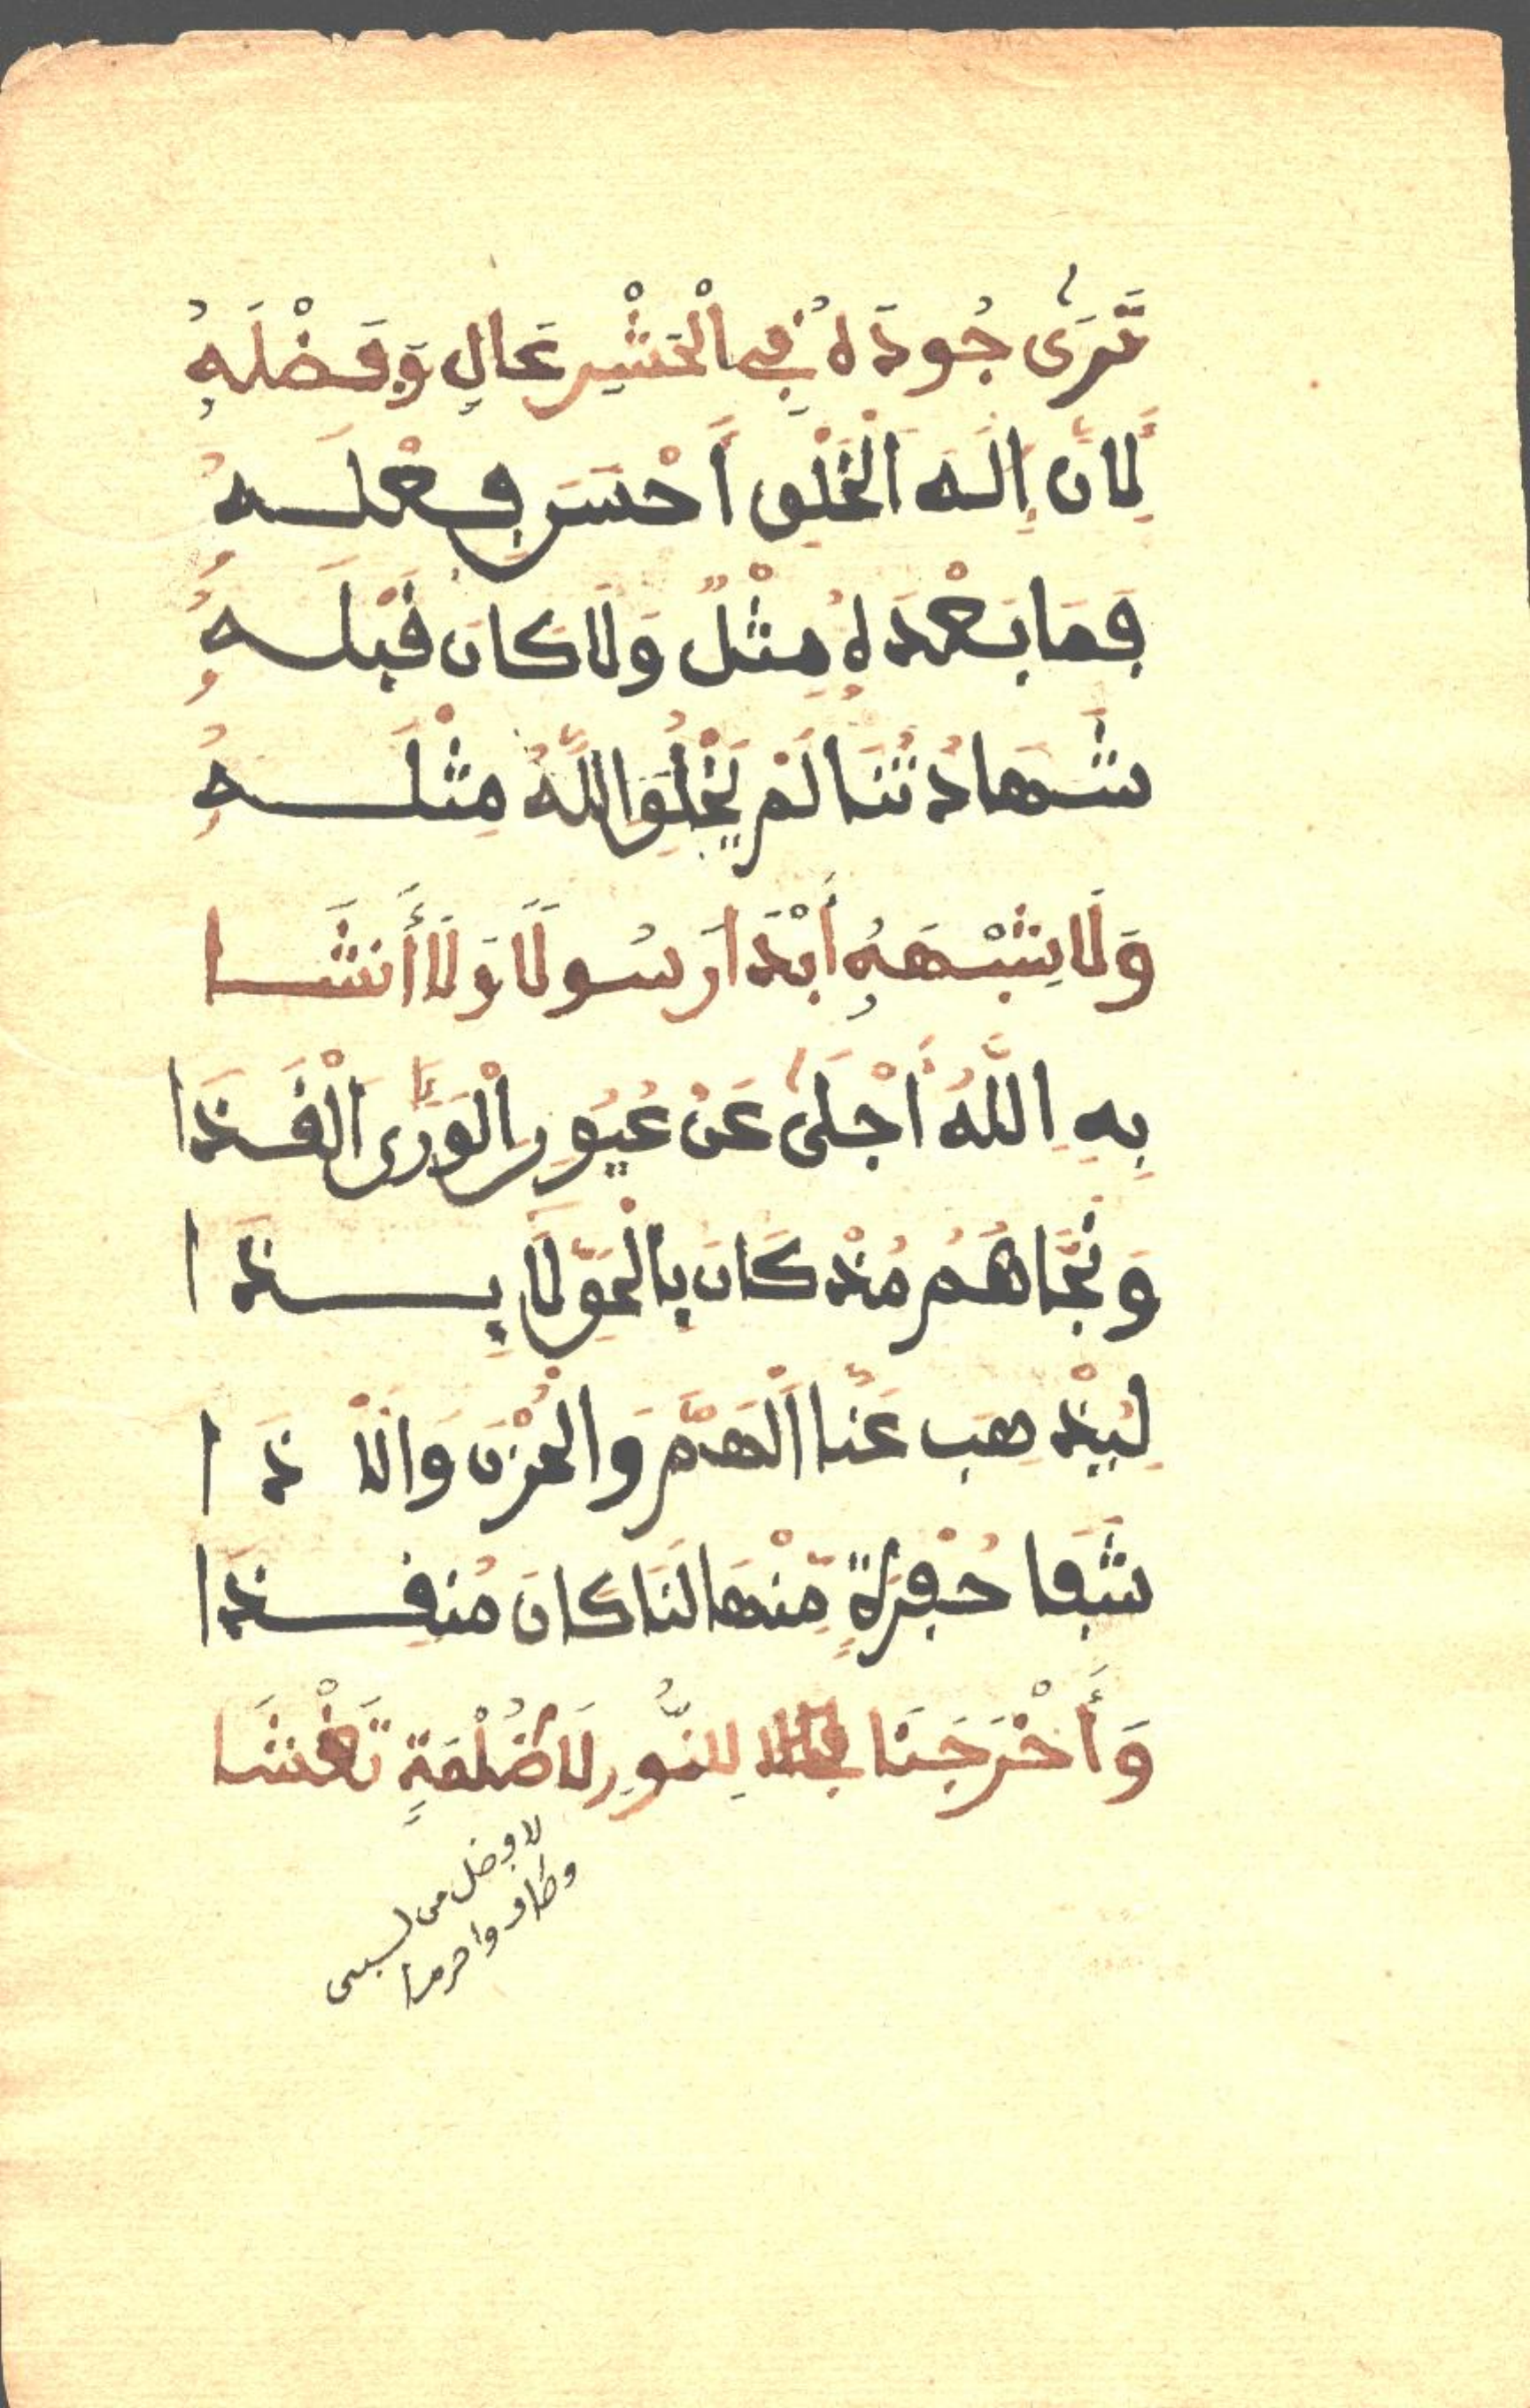 تَرَىٰ جُودَهُ فِي الْحَشْرِ عَالٍ وَفَضْلَهُ
لِأَنَّ إِلَهَ الْخَلْقِ أَحْسَنَ فِعْلَهُ
فَمَا بَعْدَهُ مِثْلٌ وَلَا كَانَ قَبْلَهُ
شَهَادَتُنَا لَمْ يَخْلُقِ اللَّهُ مِثْلَهُ
وَلَا يُشْبِهُهُ أَبْدَا رَسُولًا وَلَا أَنشَا
بِهِ اللَّهُ أَجْلَىٰ عَنْ عُيُونِ الْوَرَى الْقَذَا
وَنَجَّاهُمُ مُذْ كَانَ بِالْحَقِّ لَايِذَا
لِيُذْهِبَ عَنَّا الْهَمَّ وَالْحُزْنَ وَالْأَذَا
شَفَا حُفْرَةٍ مِّنْهَا لَنَا كَانَ مُنقِذَا
وَأَخْرَجَنَا لِلنُّورِ لَا ظُلْمَةٍ تَغْشَا